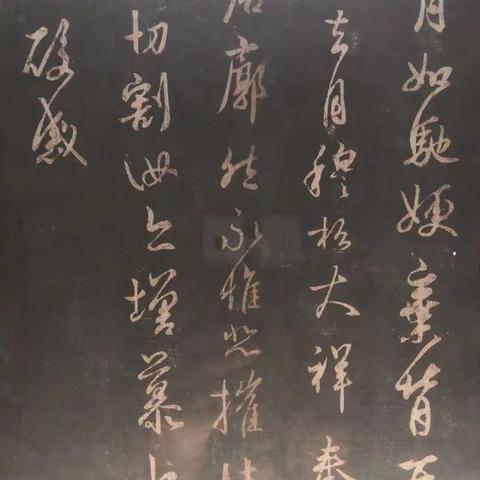 月如馳嫂棄背
去月穆松大祥奉
廓然永惟悲摧
切割汝亦增慕
酸感